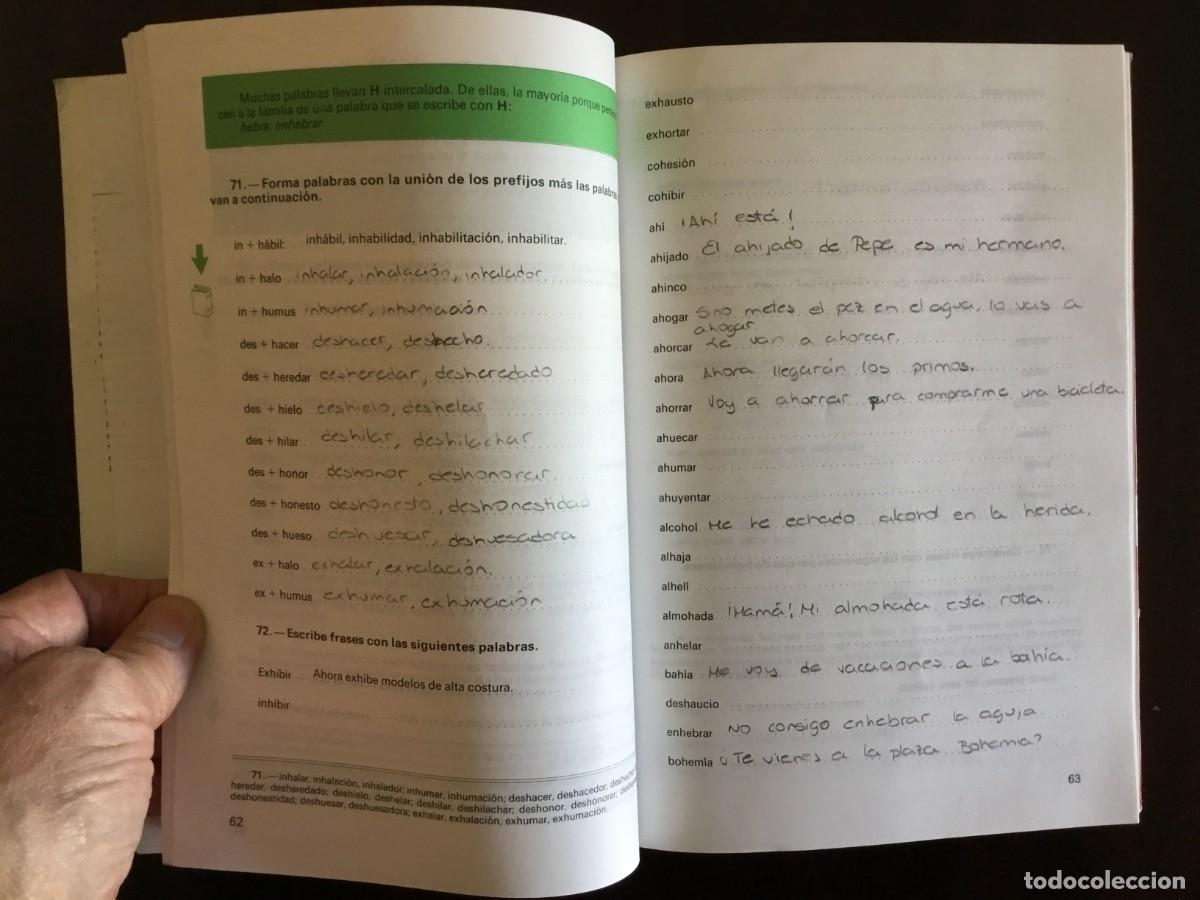 Muchas palabras llevan H intercalada. De ellas, la mayoría porque
cen a la familia de una palabra que se escribe con H:
hebra: enhebrar
71.—Forma palabras con la unión de los prefijos más las palabras
van a continuación.
in + hábil: inhábil, inhabilidad, inhabilitación, inhabilitar.
in + halo inhalar, inhalación, inhalador.
in + humus inhumar, inhumación
des + hacer deshacer, deshecho.
des + heredar desheredar, desheredado
des + hielo deshielo, deshelar
des + hilar deshilar, deshilachar
des + honor deshonor, deshonorar.
des + honesto deshonesto, deshonestidad
des + hueso deshuesar, deshuesadora
ex + halo exhalar, exhalación.
ex + humus exhumar, exhumación
72.—Escribe frases con las siguientes palabras.
Exhibir Ahora exhibe modelos de alta costura.
inhibir
71.—inhalar, inhalación, inhalador; inhumar, inhumación; deshacer, deshacedor,
heredar, desheredado; deshielo, deshelar; deshilar, deshilachar; deshonor, deshonorar;
deshonestidad; deshuesar, deshuesadora; exhalar, exhalación; exhumar, exhumación.
62
exhausto
exhortar
cohesión
cohibir
ahí ¡Ahí está!
ahijado El ahijado de Pepe es mi hermano.
ahinco
ahogar Sino metes el pez en el agua, lo vas a
ahogar.
ahorcar Le van a ahorcar.
ahora Ahora llegarán los primos.
ahorrar Voy a ahorrar para comprarme una bicicleta.
ahuecar
ahumar
ahuyentar
alcohol Me he echado alcorol en la herida.
alhaja
alhelí
almohada ¡Mamá! Mi almohada está rota.
anhelar
bahía Me voy de vacaciones a la bahía.
deshaucio
enhebrar No consigo enhebrar la aguja
bohemia ¿Te vienes a la plaza Bohemia?
63
todocoleccion